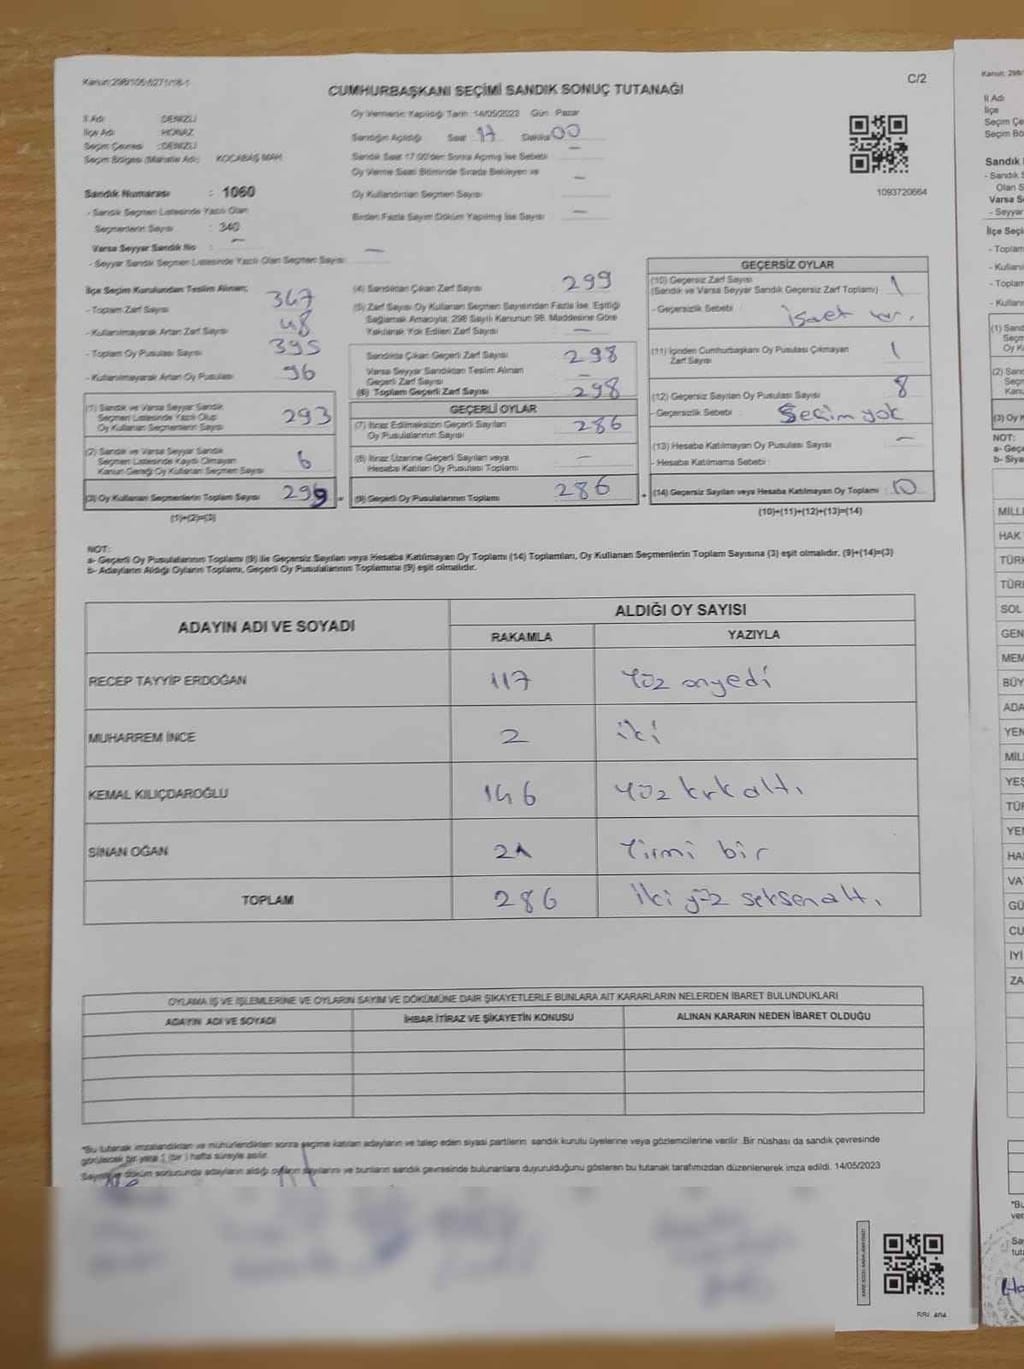 Kanun:298/105-6271/18-1
C/2
CUMHURBAŞKANI SEÇİMİ SANDIK SONUÇ TUTANAĞI
İl Adı : DENİZLİ
İlçe Adı : HONAZ
Seçim Çevresi : DENİZLİ
Seçim Bölgesi (Mahalle Adı) : KOCABAŞ MAH
Sandık Numarası : 1060
- Sandık Seçmen Listesinde Yazılı Olan
Seçmenlerin Sayısı : 340
Varsa Seyyar Sandık No : —
- Seyyar Sandık Seçmen Listesinde Yazılı Olan Seçmen Sayısı : —
Oy Vermenin Yapıldığı Tarih : 14/05/2023 Gün : Pazar
Sandığın Açıldığı Saat 17 Dakika 00
Sandık Saat 17:00'den Sonra Açılmış İse Sebebi : —
Oy Verme Saati Bitiminde Sırada Bekleyen ve
Oy Kullandırılan Seçmen Sayısı : —
Birden Fazla Sayım Döküm Yapılmış İse Sayısı : —
1093720664
İlçe Seçim Kurulundan Teslim Alınan;
- Toplam Zarf Sayısı 347
- Kullanılmayarak Artan Zarf Sayısı 48
- Toplam Oy Pusulası Sayısı 395
- Kullanılmayarak Artan Oy Pusulası 96
(1) Sandık ve Varsa Seyyar Sandık
Seçmen Listesinde Yazılı Olup
Oy Kullanan Seçmenlerin Sayısı 293
(2) Sandık ve Varsa Seyyar Sandık
Seçmen Listesinde Kaydı Olmayan
Kanun Gereği Oy Kullanan Seçmen Sayısı 6
(3) Oy Kullanan Seçmenlerin Toplam Sayısı 299
(1)+(2)=(3)
(4) Sandıktan Çıkan Zarf Sayısı 299
(5) Zarf Sayısı Oy Kullanan Seçmen Sayısından Fazla İse, Eşitliği
Sağlamak Amacıyla; 298 Sayılı Kanunun 98. Maddesine Göre
Yakılarak Yok Edilen Zarf Sayısı —
Sandıkta Çıkan Geçerli Zarf Sayısı 298
Varsa Seyyar Sandıktan Teslim Alınan
Geçerli Zarf Sayısı —
(6) Toplam Geçerli Zarf Sayısı 298
GEÇERLİ OYLAR
(7) İtiraz Edilmeksizin Geçerli Sayılan
Oy Pusulalarının Sayısı 286
(8) İtiraz Üzerine Geçerli Sayılan veya
Hesaba Katılan Oy Pusulası Toplamı —
(9) Geçerli Oy Pusulalarının Toplamı 286
GEÇERSİZ OYLAR
(10) Geçersiz Zarf Sayısı
(Sandık ve Varsa Seyyar Sandık Geçersiz Zarf Toplamı) 1
- Geçersizlik Sebebi :
(11) İçinden Cumhurbaşkanı Oy Pusulası Çıkmayan
Zarf Sayısı 1
(12) Geçersiz Sayılan Oy Pusulası Sayısı 8
- Geçersizlik Sebebi : Seçim yok
(13) Hesaba Katılmayan Oy Pusulası Sayısı —
- Hesaba Katılmama Sebebi :
(14) Geçersiz Sayılan veya Hesaba Katılmayan Oy Toplamı 10
(10)+(11)+(12)+(13)=(14)
NOT:
a- Geçerli Oy Pusulalarının Toplamı (9) ile Geçersiz Sayılan veya Hesaba Katılmayan Oy Toplamı (14) Toplamları, Oy Kullanan Seçmenlerin Toplam Sayısına (3) eşit olmalıdır. (9)+(14)=(3)
b- Adayların Aldığı Oyların Toplamı, Geçerli Oy Pusulalarının Toplamına (9) eşit olmalıdır.
ADAYIN ADI VE SOYADI
ALDIĞI OY SAYISI
RAKAMLA YAZIYLA
RECEP TAYYİP ERDOĞAN 117 Yüz onyedi
MUHARREM İNCE 2 iki
KEMAL KILIÇDAROĞLU 146 Yüz kırk altı
SİNAN OĞAN 21 Yirmi bir
TOPLAM 286 İki yüz seksen altı
OYLAMA İŞ VE İŞLEMLERİNE VE OYLARIN SAYIM VE DÖKÜMÜNE DAİR ŞİKAYETLERLE BUNLARA AİT KARARLARIN NELERDEN İBARET BULUNDUKLARI
ADAYIN ADI VE SOYADI İHBAR İTİRAZ VE ŞİKAYETİN KONUSU ALINAN KARARIN NEDEN İBARET OLDUĞU
*Bu tutanak imzalandıktan ve mühürlendikten sonra seçime katılan adayların ve talep eden siyasi partilerin sandık kurulu üyelerine veya gözlemcilerine verilir. Bir nüshası da sandık çevresinde
görülecek bir yere 1 (bir) hafta süreyle asılır.
Sayım ve döküm sonucunda adayların aldığı oyların sayılarını ve bunların sandık çevresinde bulunanlara duyurulduğunu gösteren bu tutanak tarafımızdan düzenlenerek imza edildi. 14/05/2023
Kanun: 298/
İl Adı
İlçe
Seçim Çe
Seçim Bö
Sandık
- Sandık S
Olan S
Varsa Se
- Seyyar
İlçe Seçi
- Toplam
- Kullanı
- Toplam
- Kullanı
(1) Sand
Seçm
Oy K
(2) Sand
Seçm
Kanu
(3) Oy K
NOT:
a- Geçe
b- Siya
MİLLİ
HAK
TÜRK
TÜRK
SOL
GEN
MEM
BÜY
ADA
YEN
MİL
YEŞ
TÜR
YEN
HAL
VA
GÜ
CU
İYİ
ZA
*Bu
ver
Sa
tuta